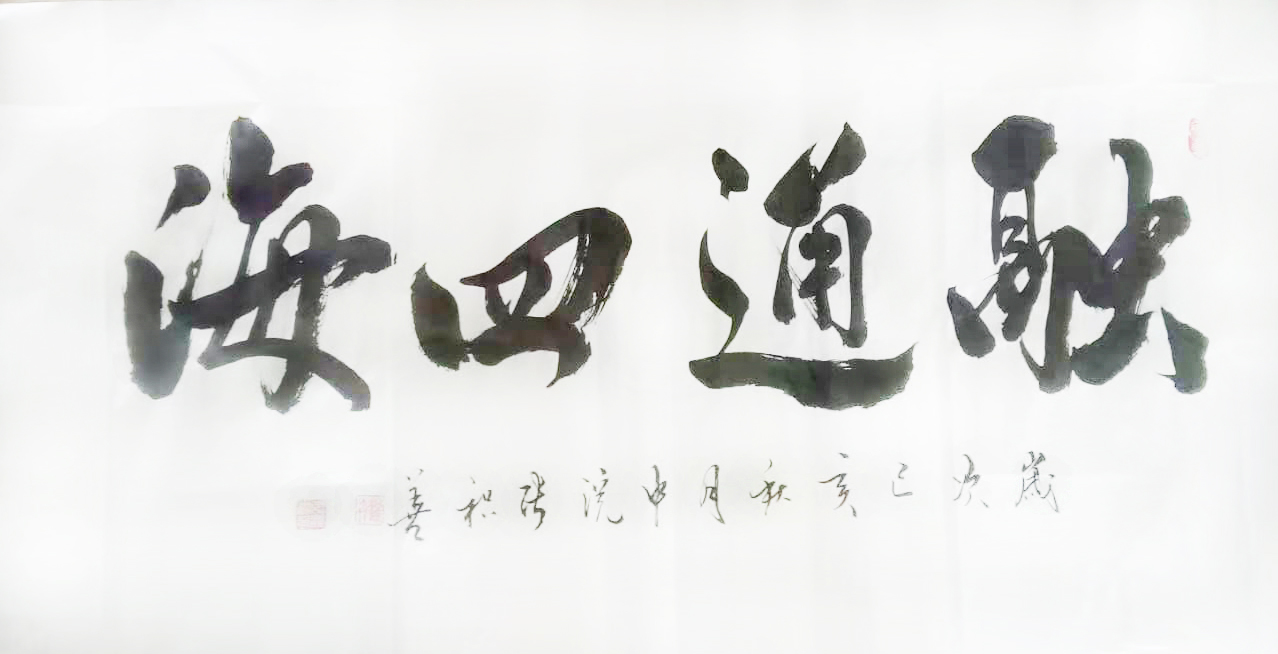 融通四海
歲次己亥秋月中浣张积善